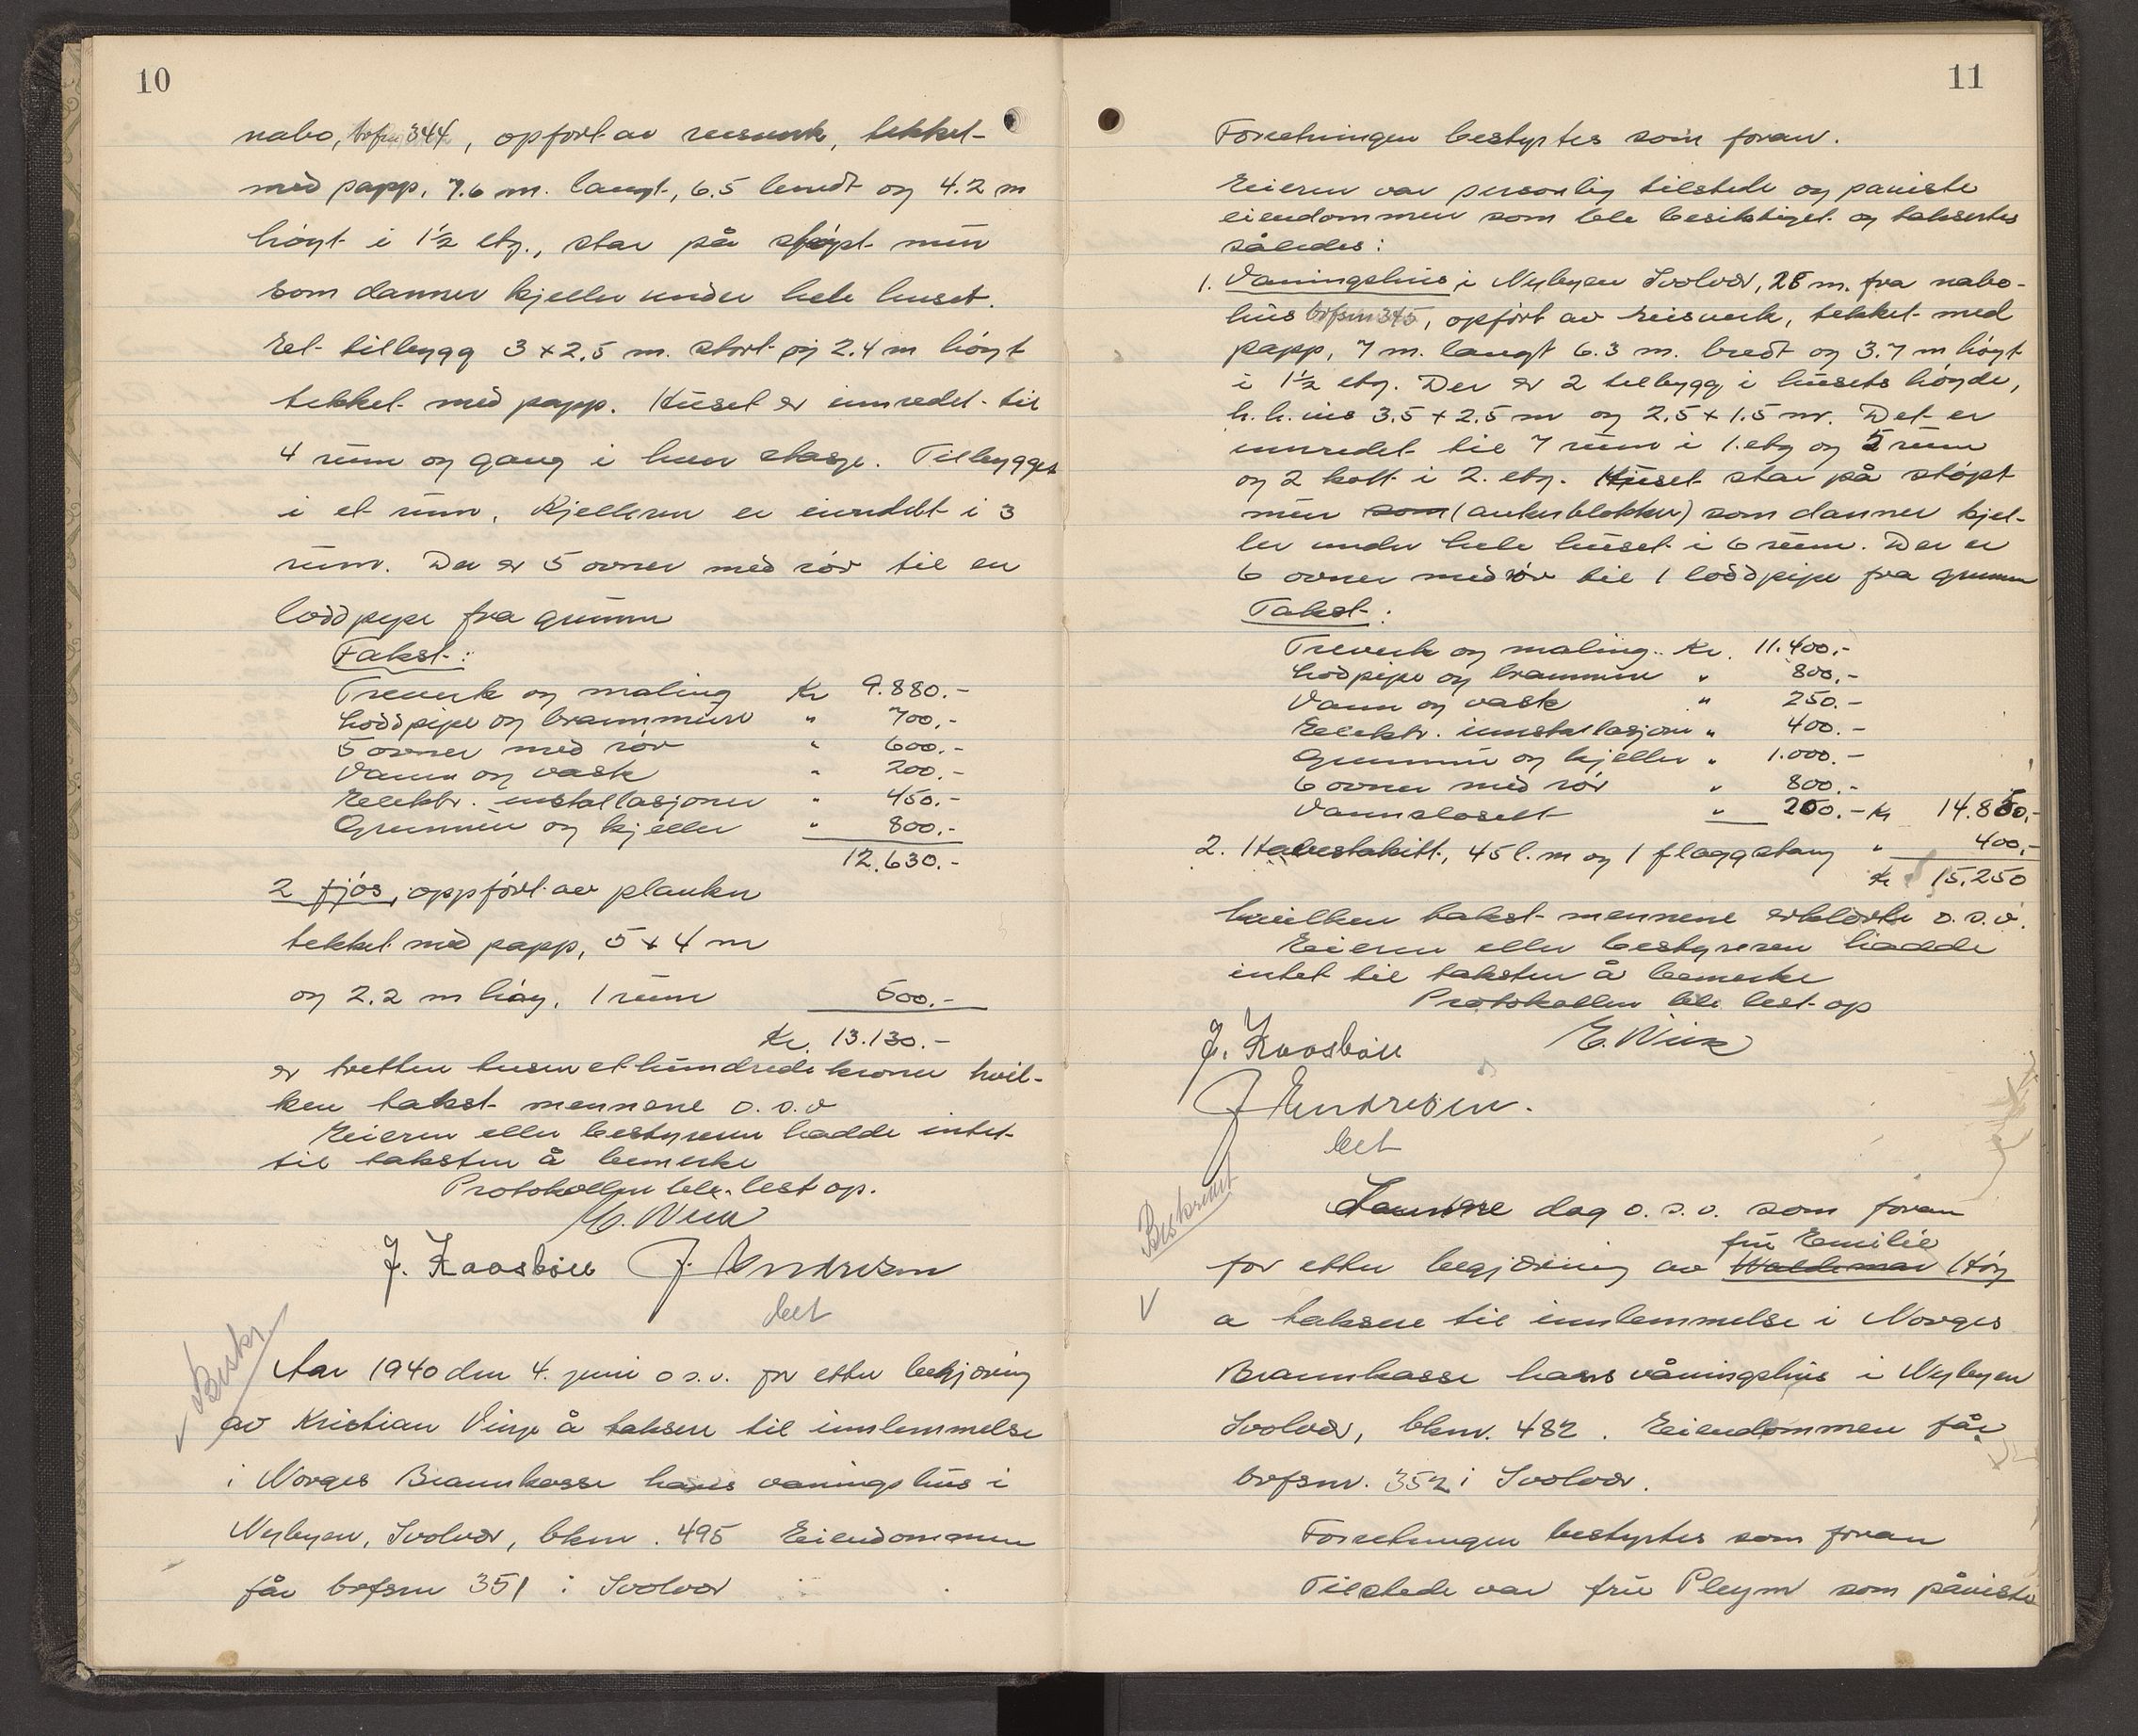 10
nabo, brfsnr 344, opført av reisverk, tekket
med papp. 7.6 m. langt, 6.5 bredt og 4.2 m
høyt i 1½ etg., står på støpt mur
som danner kjeller under hele huset.
Eet tilbygg 3 x 2,5 m. stort og 2.4 m høyt
tekket med papp. Huset er innredet til
4 rum og gang i hver etasje. Tilbygget
i et rum. Kjelleren er inndelt i 3
rum. Der er 5 ovner med rør til en
loddpipe fra grunnen
Takst:
Treverk og maling Kr 9.880.-
Loddpipe og brannmurer " 700.-
5 ovner med rør " 600.-
Vann og vask " 200.-
Elektr. installasjoner " 450.-
Grunnmur og kjeller " 800.-
12.630.-
2 fjøs, oppført av planker
tekket med papp, 5 x 4 m
og 2.2 m høy. 1 rum 500.-
Kr. 13.130.-
er tretten tusen et hundrede kroner hvil-
ken takst mennene o.s.v
Eieren eller bestyreren hadde intet
til taksten å bemerke
Protokollen ble lest op.
E. Wiik
J. Kaasbøll J. Endresen
bet
Beskr
Aar 1940 den 4. juni o s.v. for etter begjæring
av Kristian Vinje å taksere til innlemmelse
i Norges Brannkasse hans vaningshus i
Nybyen, Svolvær, bknr. 495 Eiendommen
får brfsnr 351 i Svolvær
11
Forretningen bestyrtes som foran.
Eieren var personlig tilstede og paviste
eiendommen som ble besiktiget og taksertes
således:
1. Vaningshus i Nybyen Svolvær, 28 m. fra nabo-
hus brfsnr 345, opført av reisverk, tekket med
papp, 7 m. langt 6.3 m. bredt og 3.7 m høyt
i 1½ etg. Der er 2 tilbygg i husets høyde,
h.h.vis 3.5 x 2.5 m og 2.5 x 1.5 m. Det er
innredet til 7 rum i 1. etg og 5 rum
og 2 kott i 2. etg. Huset står på støpt
mur som (ankerblokker) som danner kjel-
ler under hele huset i 6 rum. Der er
6 ovner med rør til 1 loddpipe fra grunnen
Takst:
Treverk og maling .. Kr. 11.400.-
Lodpipe og brannmur " 800.-
Vann og vask " 250.-
Elektr. innstallasjon " 400.-
Grunnmur og kjeller " 1.000.-
6 ovner med rør " 800.-
Vannclosett " 200.- Kr 14.850.-
2. Havestakitt, 45 l. m og 1 flaggstang " 400.-
Kr 15.250
hvilken takst mennene erklærte o.s.v.
Eieren eller bestyreren hadde
intet til taksten å bemerke
Protokollen ble lest op
J. Kaasbøll E. Wiik
J Endresen.
bet
Beskrevet
Samme dag o.s.v. som foran
fru Emilie
for etter begjæring av Waldemar Høy
a taksere til innlemmelse i Norges
Brannkasse hans våningshus i Nybyen
Svolvær, bknr. 482. Eiendommen får
brfsnr. 352 i Svolvær.
Forretningen bestyrtes som foran
Tilstede var fru Pleym som påviste